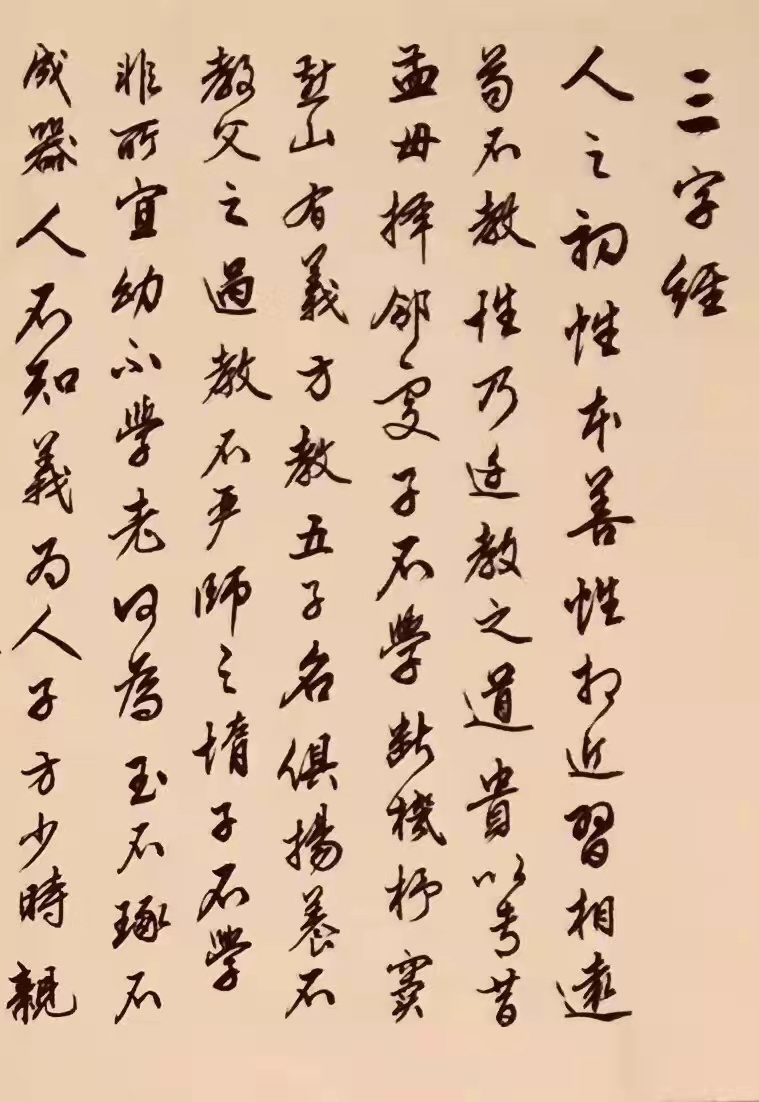 三字經
人之初性本善性相近習相遠
苟不教性乃迁教之道貴以专昔
孟母择鄰處子不學断機杼竇
燕山有義方教五子名俱揚養不
教父之過教不严師之惰子不學
非所宜幼不學老何為玉不琢不
成器人不知義为人子方少時親